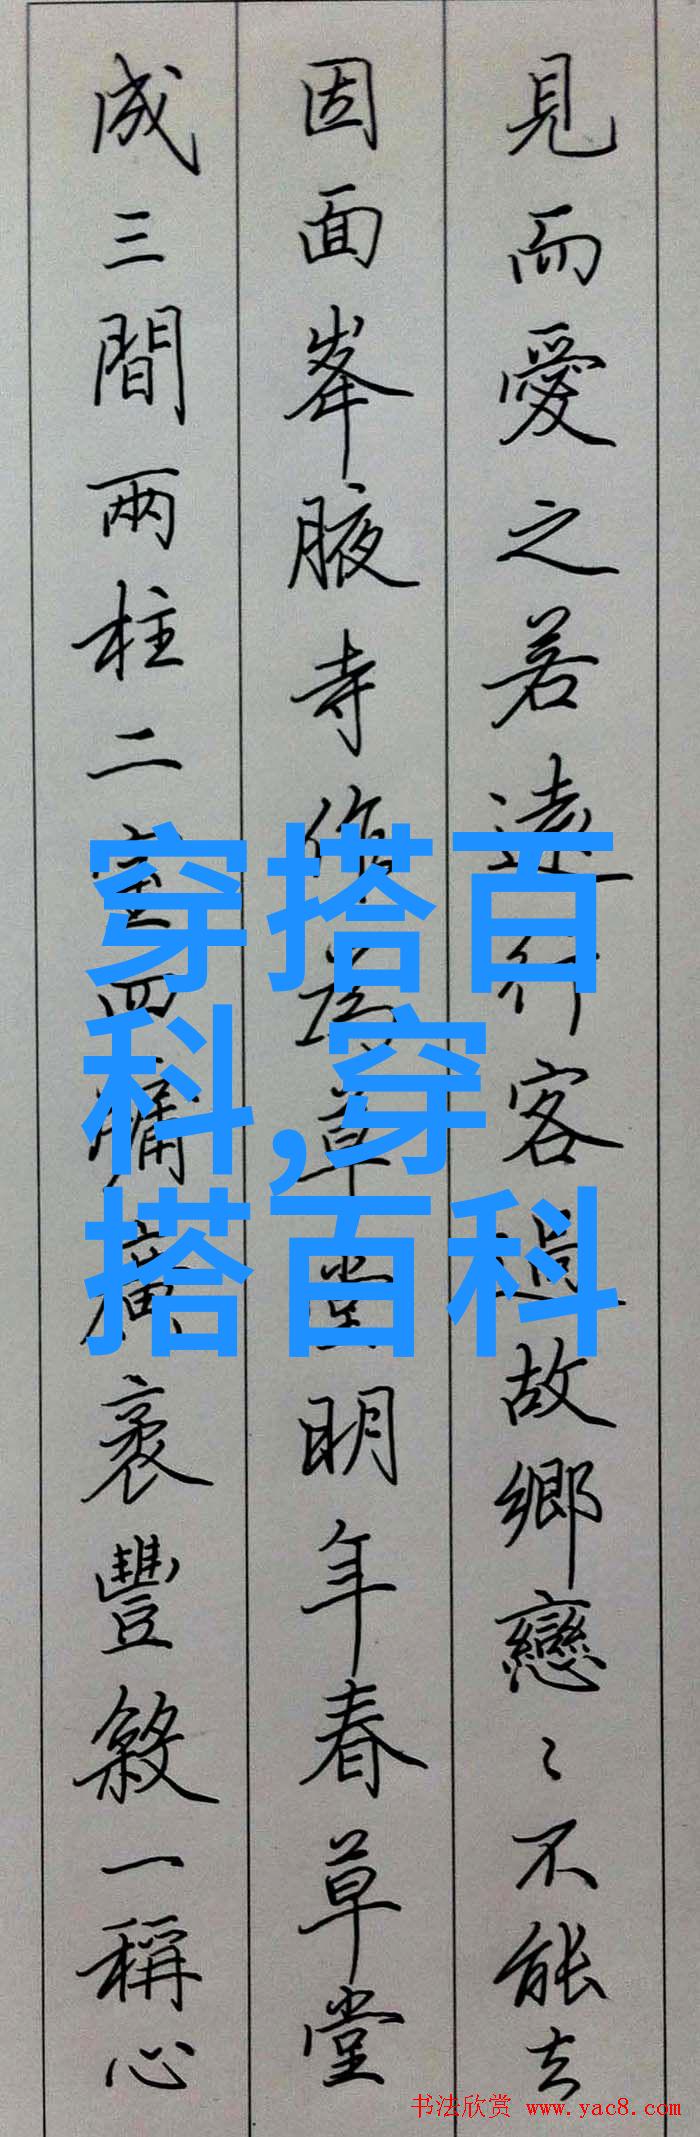 見而愛之若遠行客過故鄉戀〻不能去
因面峯腋寺作為草堂明年春草堂
成三間兩柱二室四牖廣袤豐殺一稱心
穿搭百
科,穿
搭百科
书法欣赏 www.yac8.com